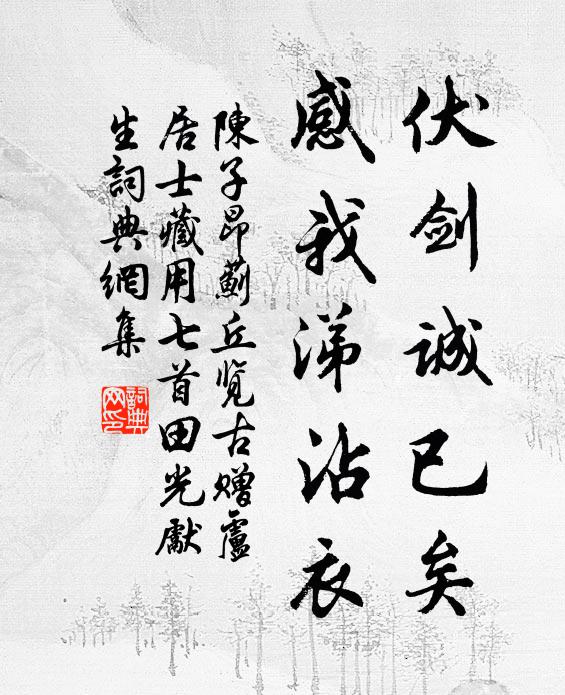 伏劍誠已矣
感我涕沾衣
陳子昂薊丘览古赠盧
居士藏用七首田光獻
生詞典網集
詞典网印